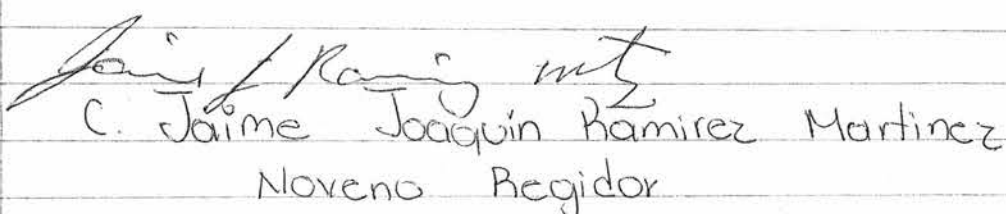 Jaime J Ramirez mtz
C. Jaime Joaquín Ramirez Martinez
Noveno Regidor